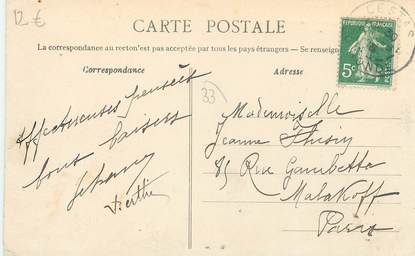 12 €
CARTE POSTALE
La correspondance au recto n'est pas acceptée par tous les pays étrangers — Se renseign
Correspondance
Adresse
RÉPUBLIQUE FRANÇAISE
5c
33
Affectueuses pensées
bons baisers
Berthe
Mademoiselle
Jeanne
85 Rue Gambetta
Malakoff
Paris